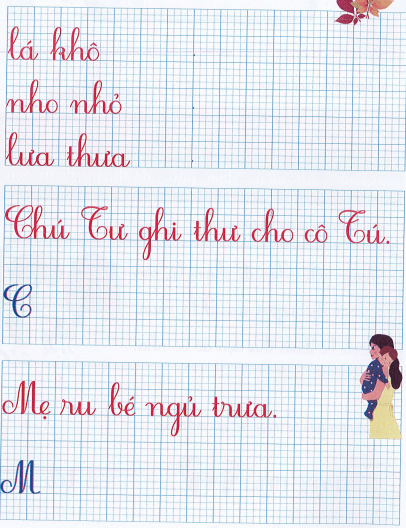 lá khô
nho nhỏ
lưa thưa
Chú Tư ghi thư cho cô Tú.
C
Mẹ ru bé ngủ trưa.
M